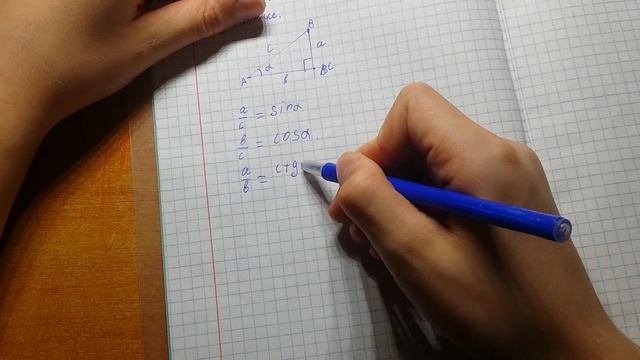 B
c
a
A
α
b
C
a/c = sinα
b/c = cosα.
a/b = ctg